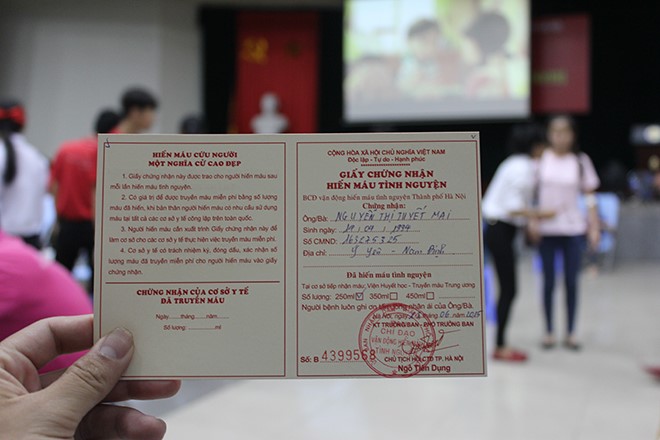 HIẾN MÁU CỨU NGƯỜI
MỘT NGHĨA CỬ CAO ĐẸP
1. Giấy chứng nhận này được trao cho người hiến máu sau
mỗi lần hiến máu tình nguyện.
2. Có giá trị để được truyền máu miễn phí bằng số lượng
máu đã hiến, khi bản thân người hiến máu có nhu cầu sử dụng
máu tại tất cả các cơ sở y tế công lập trên toàn quốc.
3. Người hiến máu cần xuất trình Giấy chứng nhận này để
làm cơ sở cho các cơ sở y tế thực hiện việc truyền máu miễn phí.
4. Cơ sở y tế có trách nhiệm ký, đóng dấu, xác nhận số
lượng máu đã truyền miễn phí cho người hiến máu vào giấy
chứng nhận.
CHỨNG NHẬN CỦA CƠ SỞ Y TẾ
ĐÃ TRUYỀN MÁU
Ngày......tháng......năm......
Số lượng:......ml
CỘNG HÒA XÃ HỘI CHỦ NGHĨA VIỆT NAM
Độc lập - Tự do - Hạnh phúc
GIẤY CHỨNG NHẬN
HIẾN MÁU TÌNH NGUYỆN
BCĐ vận động hiến máu tình nguyện Thành phố Hà Nội
Chứng nhận:
Ông/Bà: NGUYỄN THỊ TUYẾT MAI
Sinh ngày: 19 / 09 / 1994
Số CMND: 163275325
Địa chỉ: Ý Yên - Nam Định
Đã hiến máu tình nguyện
Tại cơ sở tiếp nhận máu: Viện Huyết học - Truyền máu Trung ương
Số lượng: 250ml ☑ 350ml ☐ 450ml ☐
Người bệnh luôn ghi ơn tấm lòng nhân ái của Ông/Bà.
Hà Nội, ngày tháng 06 năm 2015
KT TRƯỞNG BAN - PHÓ TRƯỞNG BAN
CHỈ ĐẠO
VẬN ĐỘNG HIẾN MÁU
TÌNH NGUYỆN
CHỦ TỊCH HỘI CTĐ TP. HÀ NỘI
Số: B 4399568
Ngô Tiến Dụng